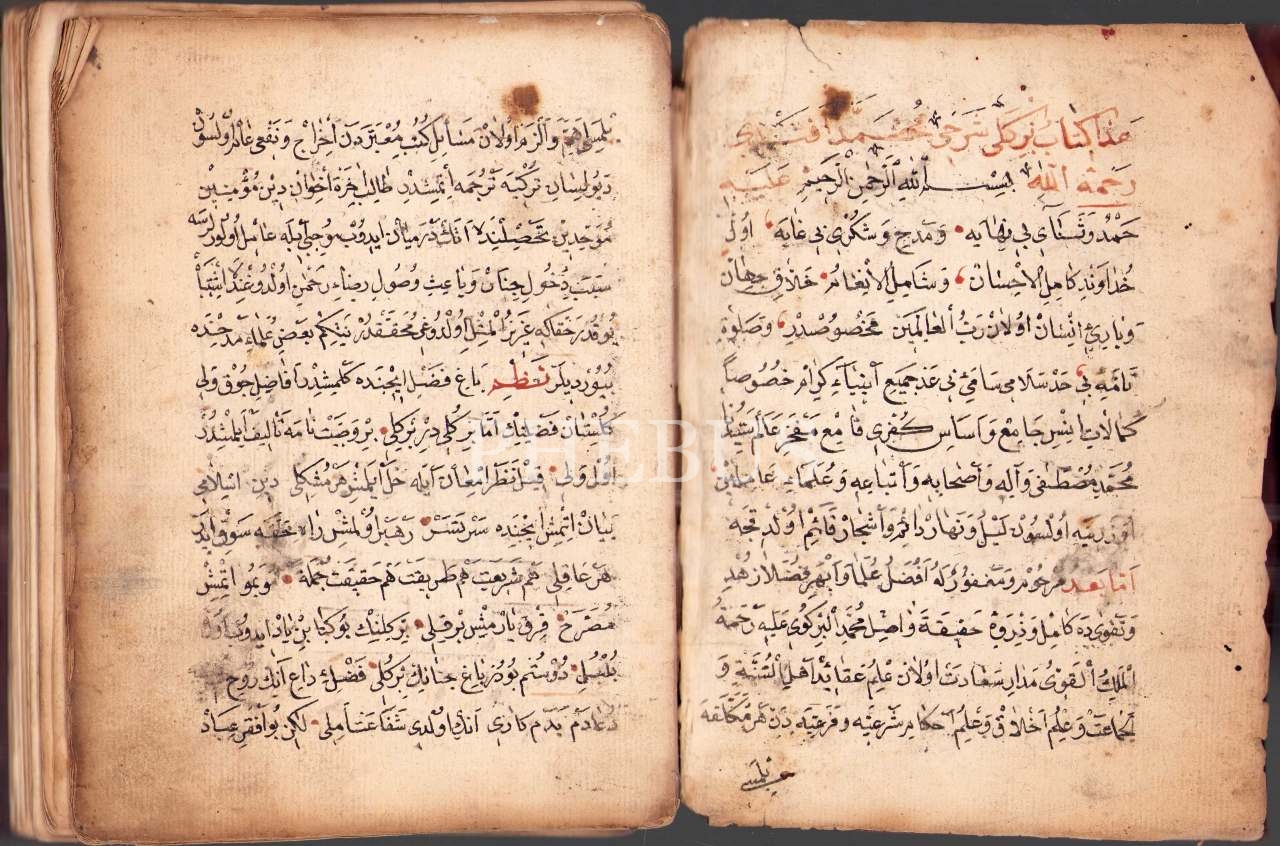 هذا كتاب بركلى شرحى محمد افندى
رحمة الله عليه
بسم الله الرحمن الرحيم
حمد و ثناى بى نهايه و مدح و شكرى بى غايه اول
خداوند كامل الاحسان و شامل الانعام خلاق جهان
و بارئ انسان اولان رب العالمين مخصوصدر و صلوة
تامه بى حد سلامى سامئ بى عد جميع انبياء كرام خصوصاً
كمالات انس جامع و اساس كفرى قامع مفخر عالم
محمد مصطفى و آله و اصحابه و اتباعه و علماء عاملين
اوزرينه اولسون ليل و نهار دائم و اشجار قائم اولدقجه
اما بعد مرحوم و مغفور له افضل علما و ابهر فضلا زهد
و تقوى ده كامل و ذروه حقيقة واصل محمد البركوى عليه رحمة
الملك القوى مدار سعادت اولان علم عقائد اهل السنة و
جماعت و علم اخلاق و علم احكام شرعيه و فرعيه دن هر مكلفه
بلمسى
بلمسى اهم و الزم اولان مسائل كتب معتبره دن اخراج و نفعى عام اولسون
ديو لسان تركيه ترجمه ايتمشدر طالب آخرة اخوان دين مؤمنين
موحدين تحصيلنده انك درميان ايدوب موجبى ايله عامل اولورلرسه
سبب دخول جنان و باعث وصول رضاء رحمن اولدوغنده اشتباه
يوقدر حقاكه عزيز المثل اولدوغى محققدر نيتكم بعض علماء مدحنده
بيورديلر نظم باغ فضل ايچنده كلمشدر افاضل جوق ولى
كلستان فضلينك اما بر كلى در بركلى بر وصيت نامه تأليف ايلمشدر
اول ولى قيل نظر امعان ايله حل ايلمش هر مشكلى دين اسلامى
بيان ايتمش ايچنده سرتسر رهبر اولمش راه حقه سوق ايدر
هر عاقلى هم شريعت هم طريقت هم حقيقت جمله موبمو ايتمش
مصرح فرق يارمش بر قيلى بركلينك بو كتابن ياد ايدوب
بلبلى دوستم بودر باغ جنانك بركلى فضلئ داع انك روح
دعادم بدم كارى انك اولدى شفاعت املى لكن بو افقر عباد
PHEBUS